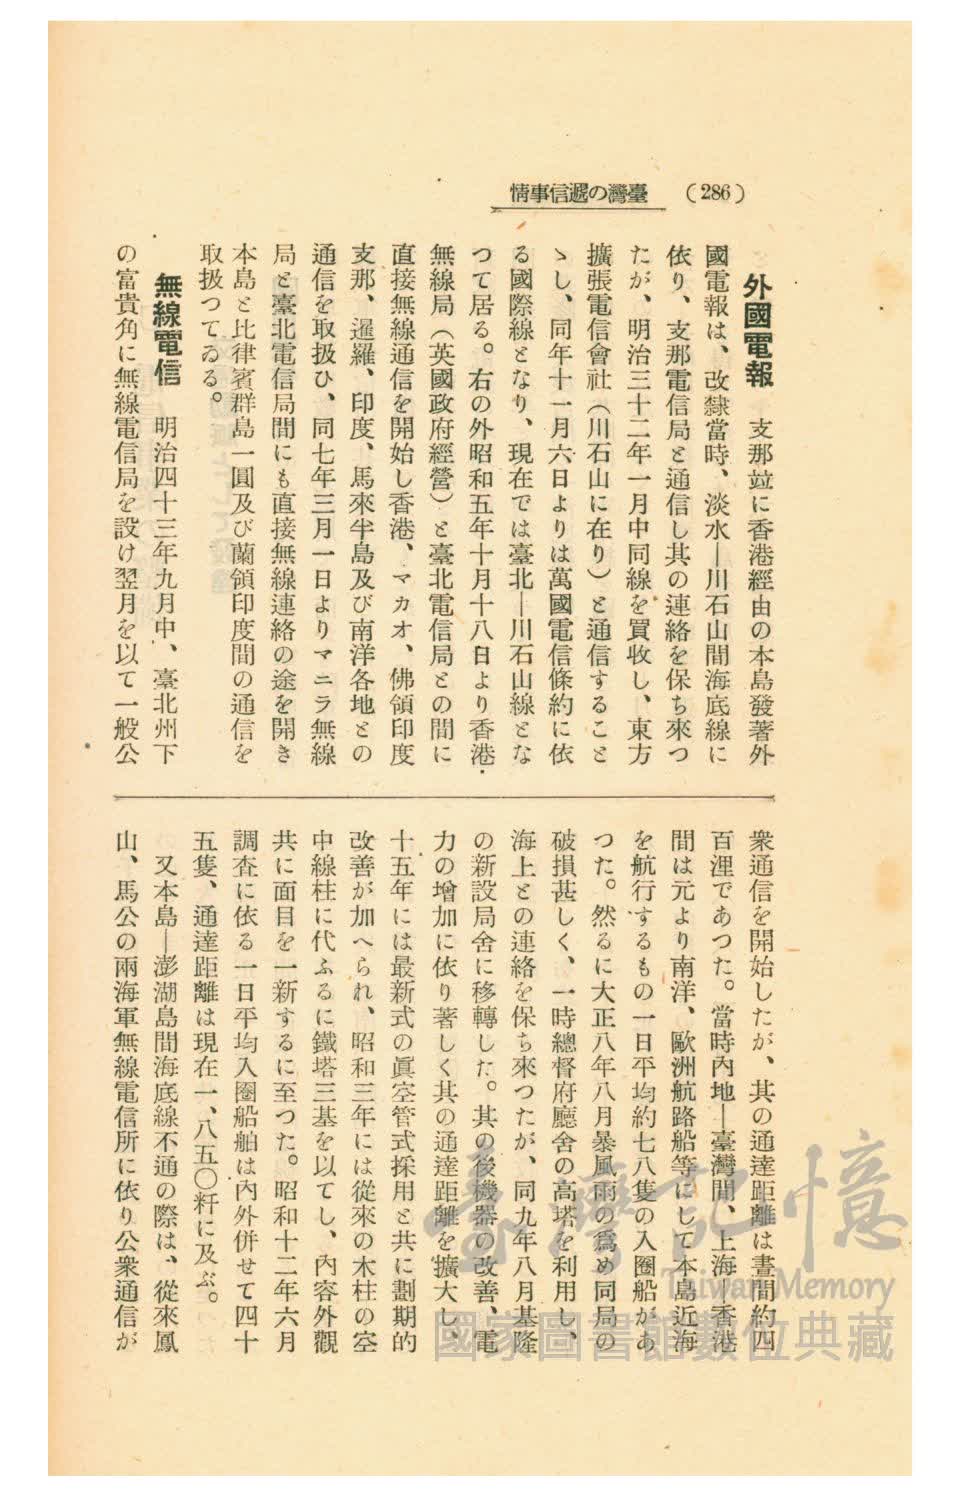 (286)
臺灣の遞信事情
外國電報　支那竝に香港經由の本島發著外
國電報は、改隸當時、淡水―川石山間海底線に
依り、支那電信局と通信し其の連絡を保ち來つ
たが、明治三十二年一月中同線を買收し、東方
擴張電信會社（川石山に在り）と通信すること
ゝし、同年十一月六日よりは萬國電信條約に依
る國際線となり、現在では臺北―川石山線とな
つて居る。右の外昭和五年十月十八日より香港
無線局（英國政府經營）と臺北電信局との間に
直接無線通信を開始し香港、マカオ、佛領印度
支那、暹羅、印度、馬來半島及び南洋各地との
通信を取扱ひ、同七年三月一日よりマニラ無線
局と臺北電信局間にも直接無線連絡の途を開き
本島と比律賓群島一圓及び蘭領印度間の通信を
取扱つてゐる。
無線電信　明治四十三年九月中、臺北州下
の富貴角に無線電信局を設け翌月を以て一般公
衆通信を開始したが、其の通達距離は晝間約四
百浬であつた。當時內地―臺灣間、上海―香港
間は元より南洋、歐洲航路船等にして本島近海
を航行するもの一日平均約七八隻の入圈船があ
つた。然るに大正八年八月暴風雨の爲め同局の
破損甚しく、一時總督府廳舍の高塔を利用し、
海上との連絡を保ち來つたが、同九年八月基隆
の新設局舍に移轉した。其の後機器の改善、電
力の增加に依り著しく其の通達距離を擴大し、
十五年には最新式の眞空管式採用と共に劃期的
改善が加へられ、昭和三年には從來の木柱の空
中線柱に代ふるに鐵塔三基を以てし、內容外觀
共に面目を一新するに至つた。昭和十二年六月
調査に依る一日平均入圈船舶は內外併せて四十
五隻、通達距離は現在一、八五〇粁に及ぶ。
又本島―澎湖島間海底線不通の際は、從來鳳
山、馬公の兩海軍無線電信所に依り公衆通信が
臺灣記憶
Taiwan Memory
國家圖書館數位典藏